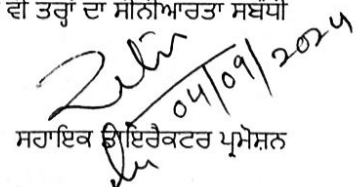 ਵੀ ਤਰ੍ਹਾਂ ਦਾ ਸੀਨੀਆਰਤਾ ਸਬੰਧੀ
04/09/2024
ਸਹਾਇਕ ਡਾਇਰੈਕਟਰ ਪ੍ਰਮੋਸ਼ਨ